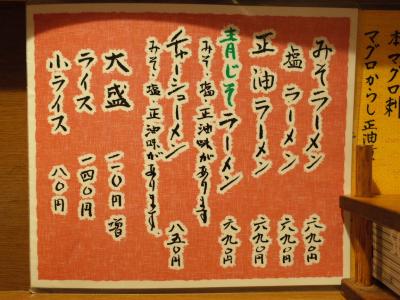 本マグロ刺
マグロからし正油
みそラーメン 六九〇円
塩ラーメン 六九〇円
正油ラーメン 六九〇円
青じそラーメン 六九〇円
みそ・塩・正油味があります
チャーシューメン 八五〇円
みそ・塩・正油味があります。
大盛 一一〇円増
ライス 一四〇円
小ライス 八〇円